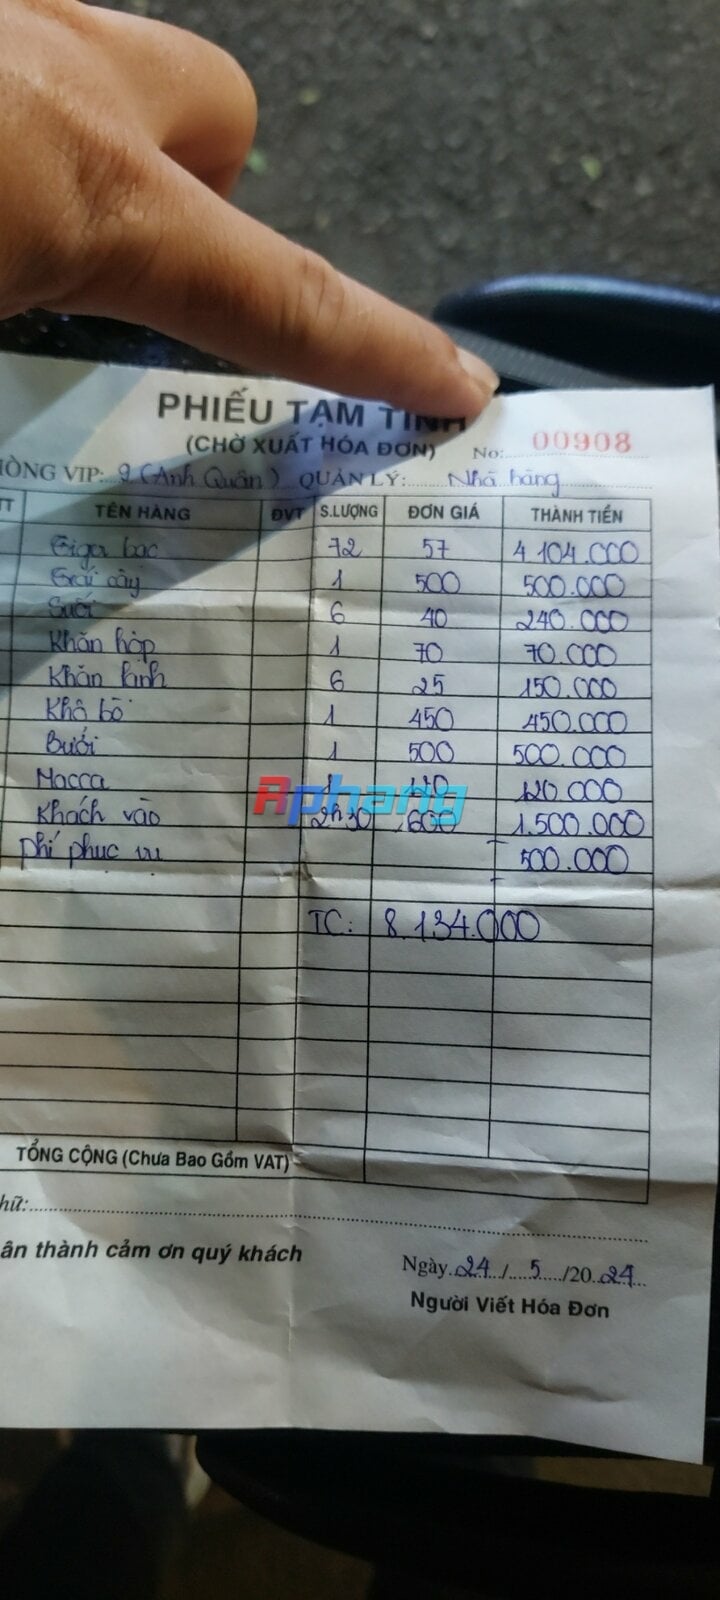 PHIẾU TẠM TÍNH
(CHỜ XUẤT HÓA ĐƠN) No: 00908
HÒNG VIP: 9 (Anh Quân) QUẢN LÝ: Nhà hàng
TT TÊN HÀNG ĐVT S.LƯỢNG ĐƠN GIÁ THÀNH TIỀN
Tiger bạc 72 57 4.104.000
Trái cây 1 500 500.000
Suối 6 40 240.000
Khăn hộp 1 70 70.000
Khăn lạnh 6 25 150.000
Khô bò 1 450 450.000
Bưởi 1 500 500.000
Macca 1 120 120.000
Khách vào 2h30 600 1.500.000
phí phục vụ 500.000
TC: 8.134.000
Rphang
TỔNG CỘNG (Chưa Bao Gồm VAT)
hữ:
ân thành cảm ơn quý khách
Ngày 24 / 5 /20 24
Người Viết Hóa Đơn